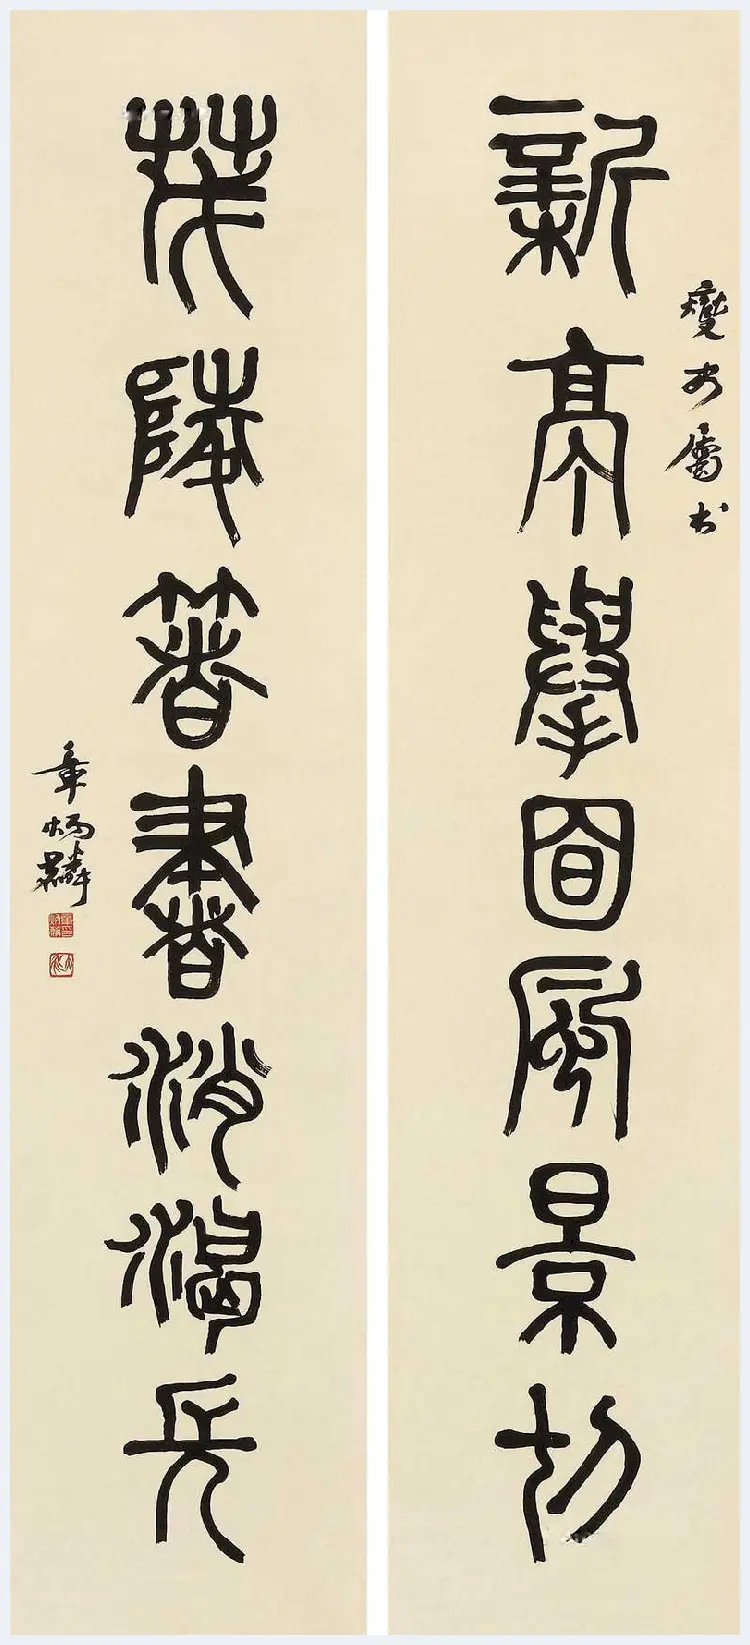 燮安屬書
新亭舉目風景切
茂陵著書消渴長
章炳麟